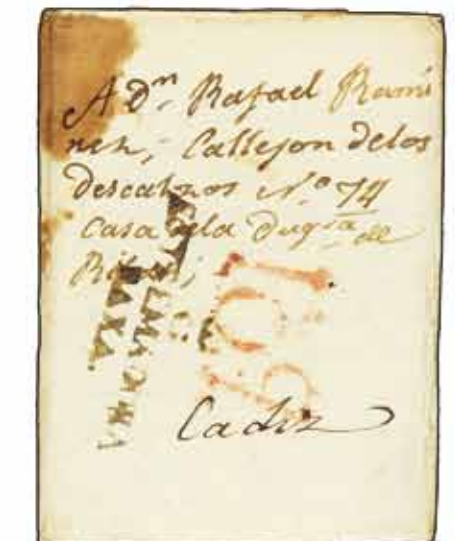 A Dn. Rafael Rami
rez, Callejon delos
descalzos No. 74
Casa dela Dugra. de
Cadiz